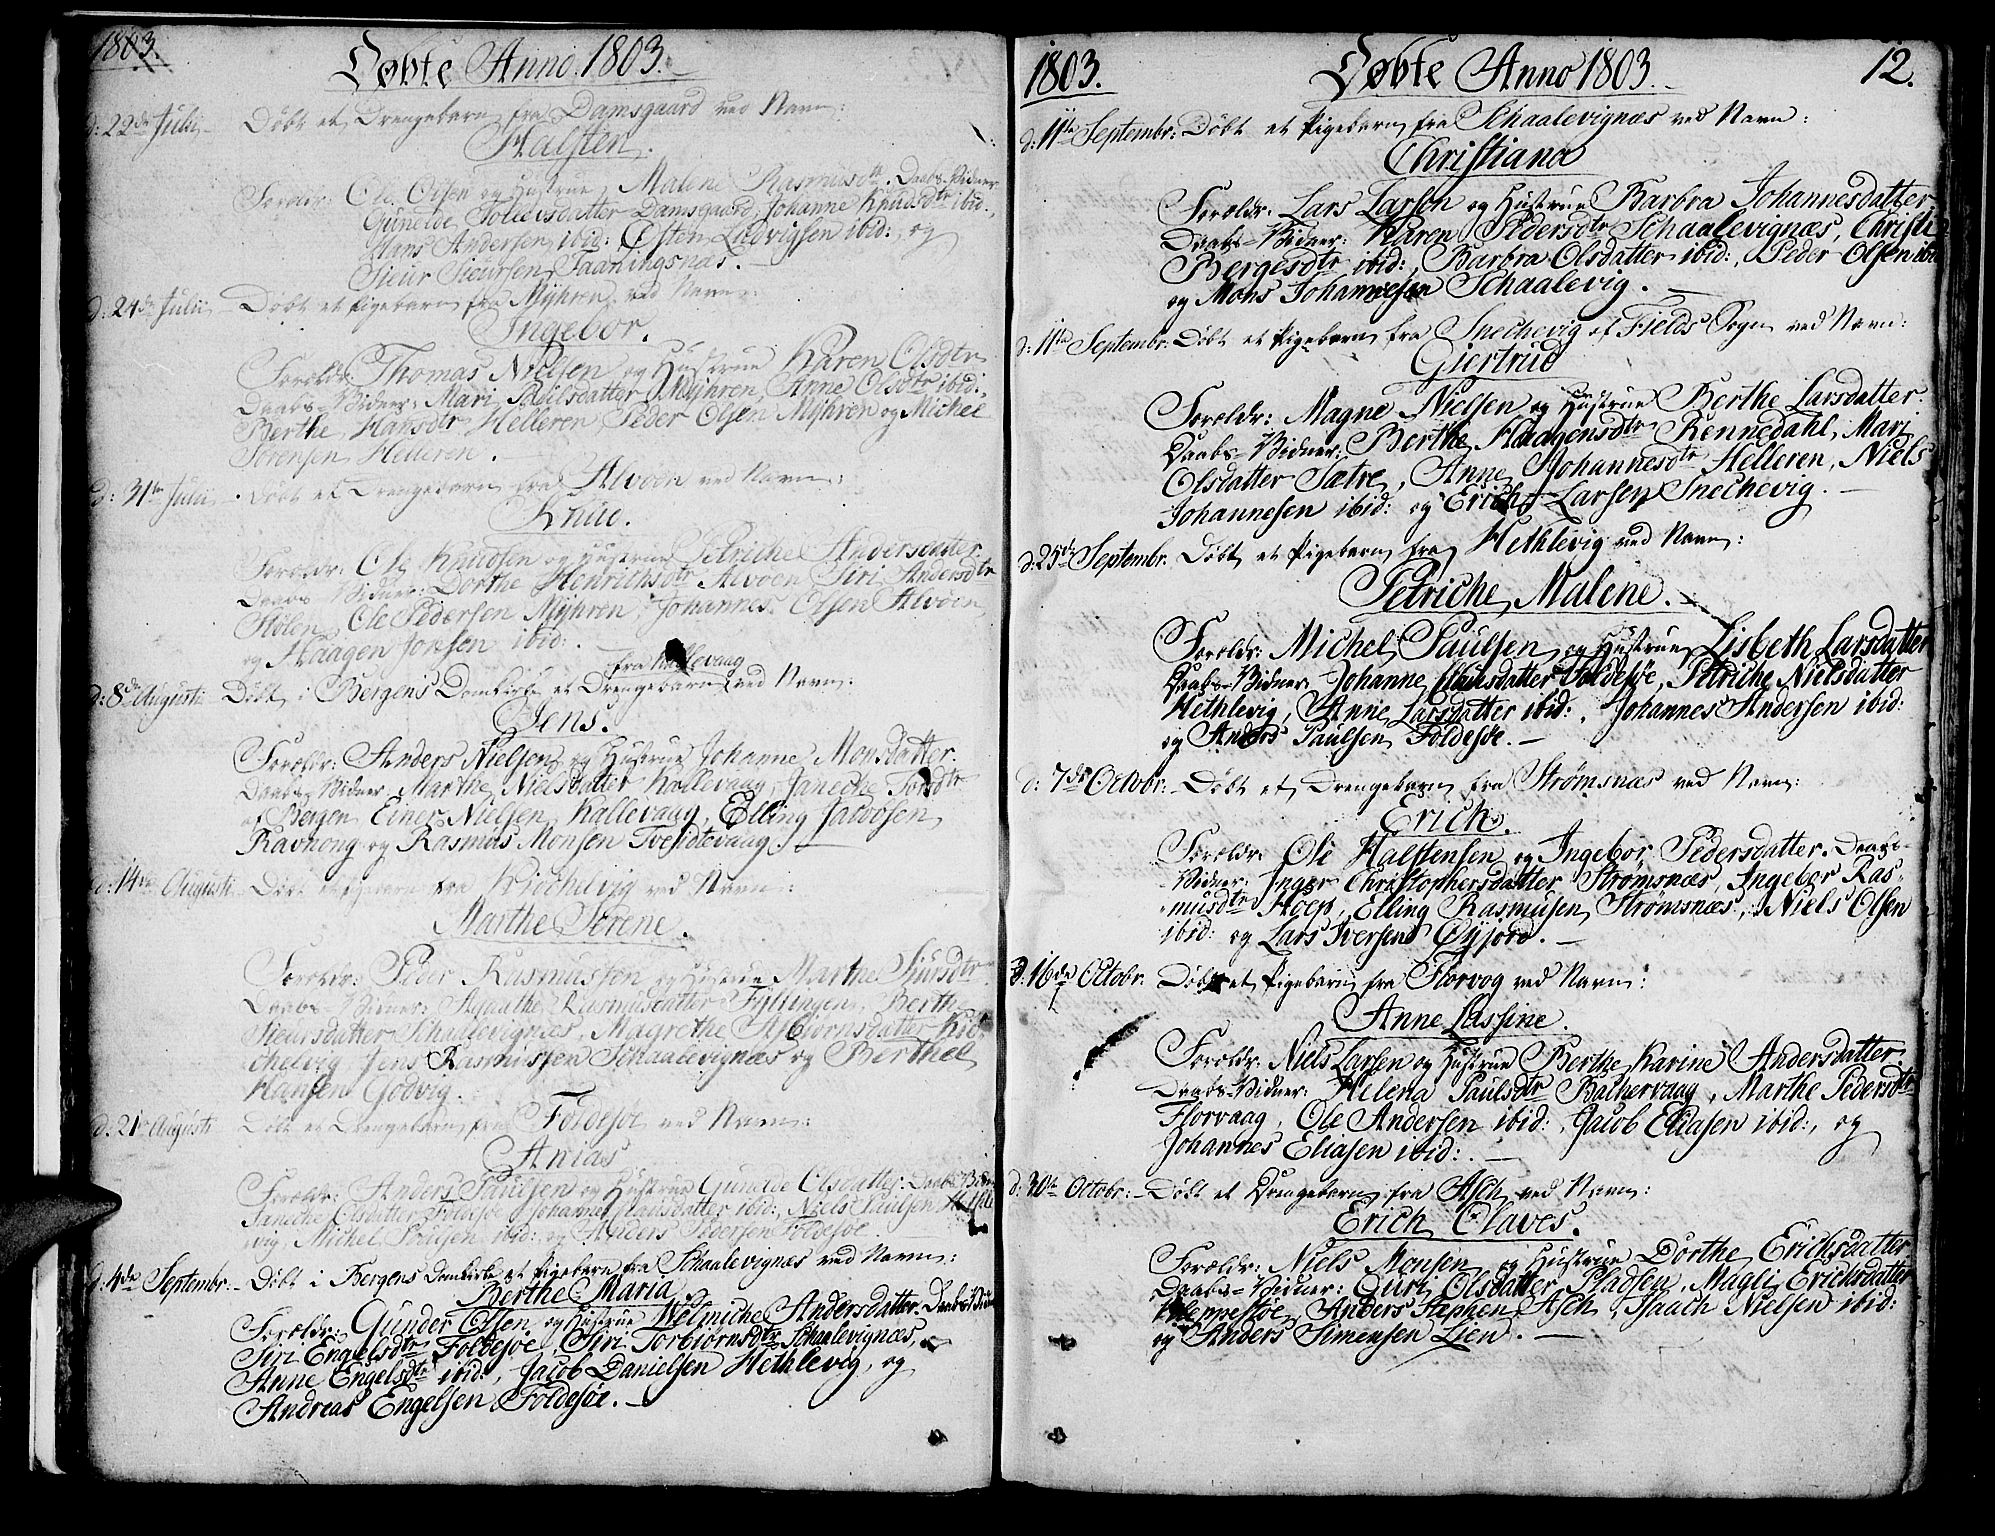 1803.
Døbte Anno 1803.
d: 22de Julii Døbt et Drengebarn fra Damsgaard ved Navn:
Halsten.
Foreldr: Ole Olsen og Hustrue Malene Rasmusdtr. Daabs-Vidner
Gunelde Tollevsdatter Damsgaard, Johanne Knudsdtr ibid:,
Hans Andersen ibid:, Østen Ludvigsen ibid:, og
Siur Siursen Taaningsnæs.
d: 24de Julii Døbt et Pigebarn fra Myhren ved Navn:
Ingebor.
Foreldr: Thomas Nielsen og Hustrue Karen Olsdtr
Daabs-Vidner: Mari Poulsdatter Myhren, Anne Olsdtr ibid:,
Berthe Hansdtr Helleren, Peder Olsen Myhren og Michel
Sørensen Helleren.
d: 31te Julii Døbt et Drengebarn fra Alvøen ved Navn:
Knud.
Foreldr: Ole Knudsen og Hustrue Petriche Andersdatter
Daabs-Vidner: Dorthe Henrichsdtr Alvøen, Siri Andersdtr
Holen, Ole Pedersen Myhren, Johannes Olsen Alvøen,
og Haagen Jonsen ibid:.
fra Kallevaag
d: 8de Augusti Døbt i Bergens Domkirke et Drengebarn ved Navn:
Jens.
Foreldr: Anders Nielsen og Hustrue Johanne Monsdatter.
Daabs-Vidner Marthe Nielsdatter Kallevaag, Janeche Tordtr
af Bergen, Einer Nielsen Kallevaag, Elling Jacobsen
Ravnong og Rasmus Monsen Tveidtevaag.
d: 14de Augusti Døbt et Pigebarn fra Kiechelvig ved Navn:
Marthe Serene.
Foreldr: Peder Rasmussen og Hustrue Marthe Siursdtr
Daabs-Vidner: Agaathe Rasmusdatter Fyllingen, Berthe
Sieursdatter Schallevignæs, Magrethe Asbiornsdatter Kie-
chelvig, Jens Rasmussen Schaalevignæs og Berthel
Hansen Godvig.
d. 21de Augusti Døbt et Drengebarn fra Foldesøe ved Navn:
Anias
Foreldr: Anders Paulsen og Hustrue Gunelde Olsdatter. Daabs-Vidn
Janeche Olsdatter Foldesøe, Johanne Clausdatter ibid:, Niels Paulsen Hethle
vig, Michel Paulsen ibid: og Anders Pedersen Foldesøe.
d: 4de Septembr. Døbt i Bergens Domkirke et Pigebarn fra Schaalevignæs ved Navn:
Berthe Maria.
Foreldr: Gunder Olsen og Hustrue Welmiche Andersdatter. Daabs-Vidn
Siri Engelsdtr Foldesøe, Siri Torbiornsdtr Schaalevignæs,
Anne Engelsdtr ibid:, Jacob Danielsen Hethlevig, og
Andreas Engelsen Foldesøe.
1803.
Døbte Anno 1803.
12.
d: 11te Septembr: Døbt et Pigebarn fra Schaalevignæs ved Navn:
Christiana
Foreldr: Lars Larsen og Hustrue Barbra Johannesdatter
Daabs-Vidner: Karen Pedersdtr Schaalevignæs, Christi
Bergesdtr ibid:, Barbra Olsdatter ibid:, Peder Olsen ibid
og Mons Johannesen Schaalevig.
d: 11te Septembr: Døbt et Pigebarn fra Snechevig af Fields Sogn ved Navn:
Giertrud
Foreldr: Magne Nielsen og Hustrue Berthe Larsdatter.
Daabs-Vidner: Berthe Haagensdtr Rennedahl, Mari
Olsdatter Sætre, Anne Johannesdtr Helleren, Niels
Johannesen ibid: og Erich Larsen Snechevig.
d: 25de Septembr. Døbt et Pigebarn fra Hethlevig ved Navn:
Petriche Malene.
Foreldr: Michel Paulsen og Hustrue Lisbeth Larsdatter
Daabs-Vidner Johanne Clausdatter Foldesøe, Petriche Nielsdatter
Hethlevig, Anne Larsdatter ibid:, Johannes Andersen ibid:
og Anders Paulsen Foldesøe.
d: 7de Octobr. Døbt et Drengebarn fra Strømsnæs ved Navn:
Erich.
Foreldr: Ole Halstensen og Ingebor Pedersdatter. Daabs-
Vidner: Inger Christophersdatter Strømsnæs, Ingebor Ras-
musdtr Hoep, Elling Rasmusen Strømsnæs, Niels Olsen
ibid: og Lars Iversen Øyjord.
d. 16de Octobr. Døbt et Pigebarn fra Florvog ved Navn:
Anne Lassine.
Foreldr: Niels Larsen og Hustrue Berthe Karine Andersdatter.
Daabs-Vidner: Helena Paulsdtr Bachervaag, Marthe Pedersdtr
Florvaag, Ole Andersen ibid:, Jacob Eliasen ibid:, og
Johannes Eliasen ibid:.
d: 30te Octobr: Døbt et Drengebarn fra Asch ved Navn:
Erich Olaves.
Foreldr: Niels Monsen og Hustrue Dorthe Erichsdatter.
Daabs-Vidner: Guri Olsdatter Pladsen, Magli Erichsdatter
Anders Stephen Asch, Isaach Nielsen ibid:
og Anders Simensen Lien.